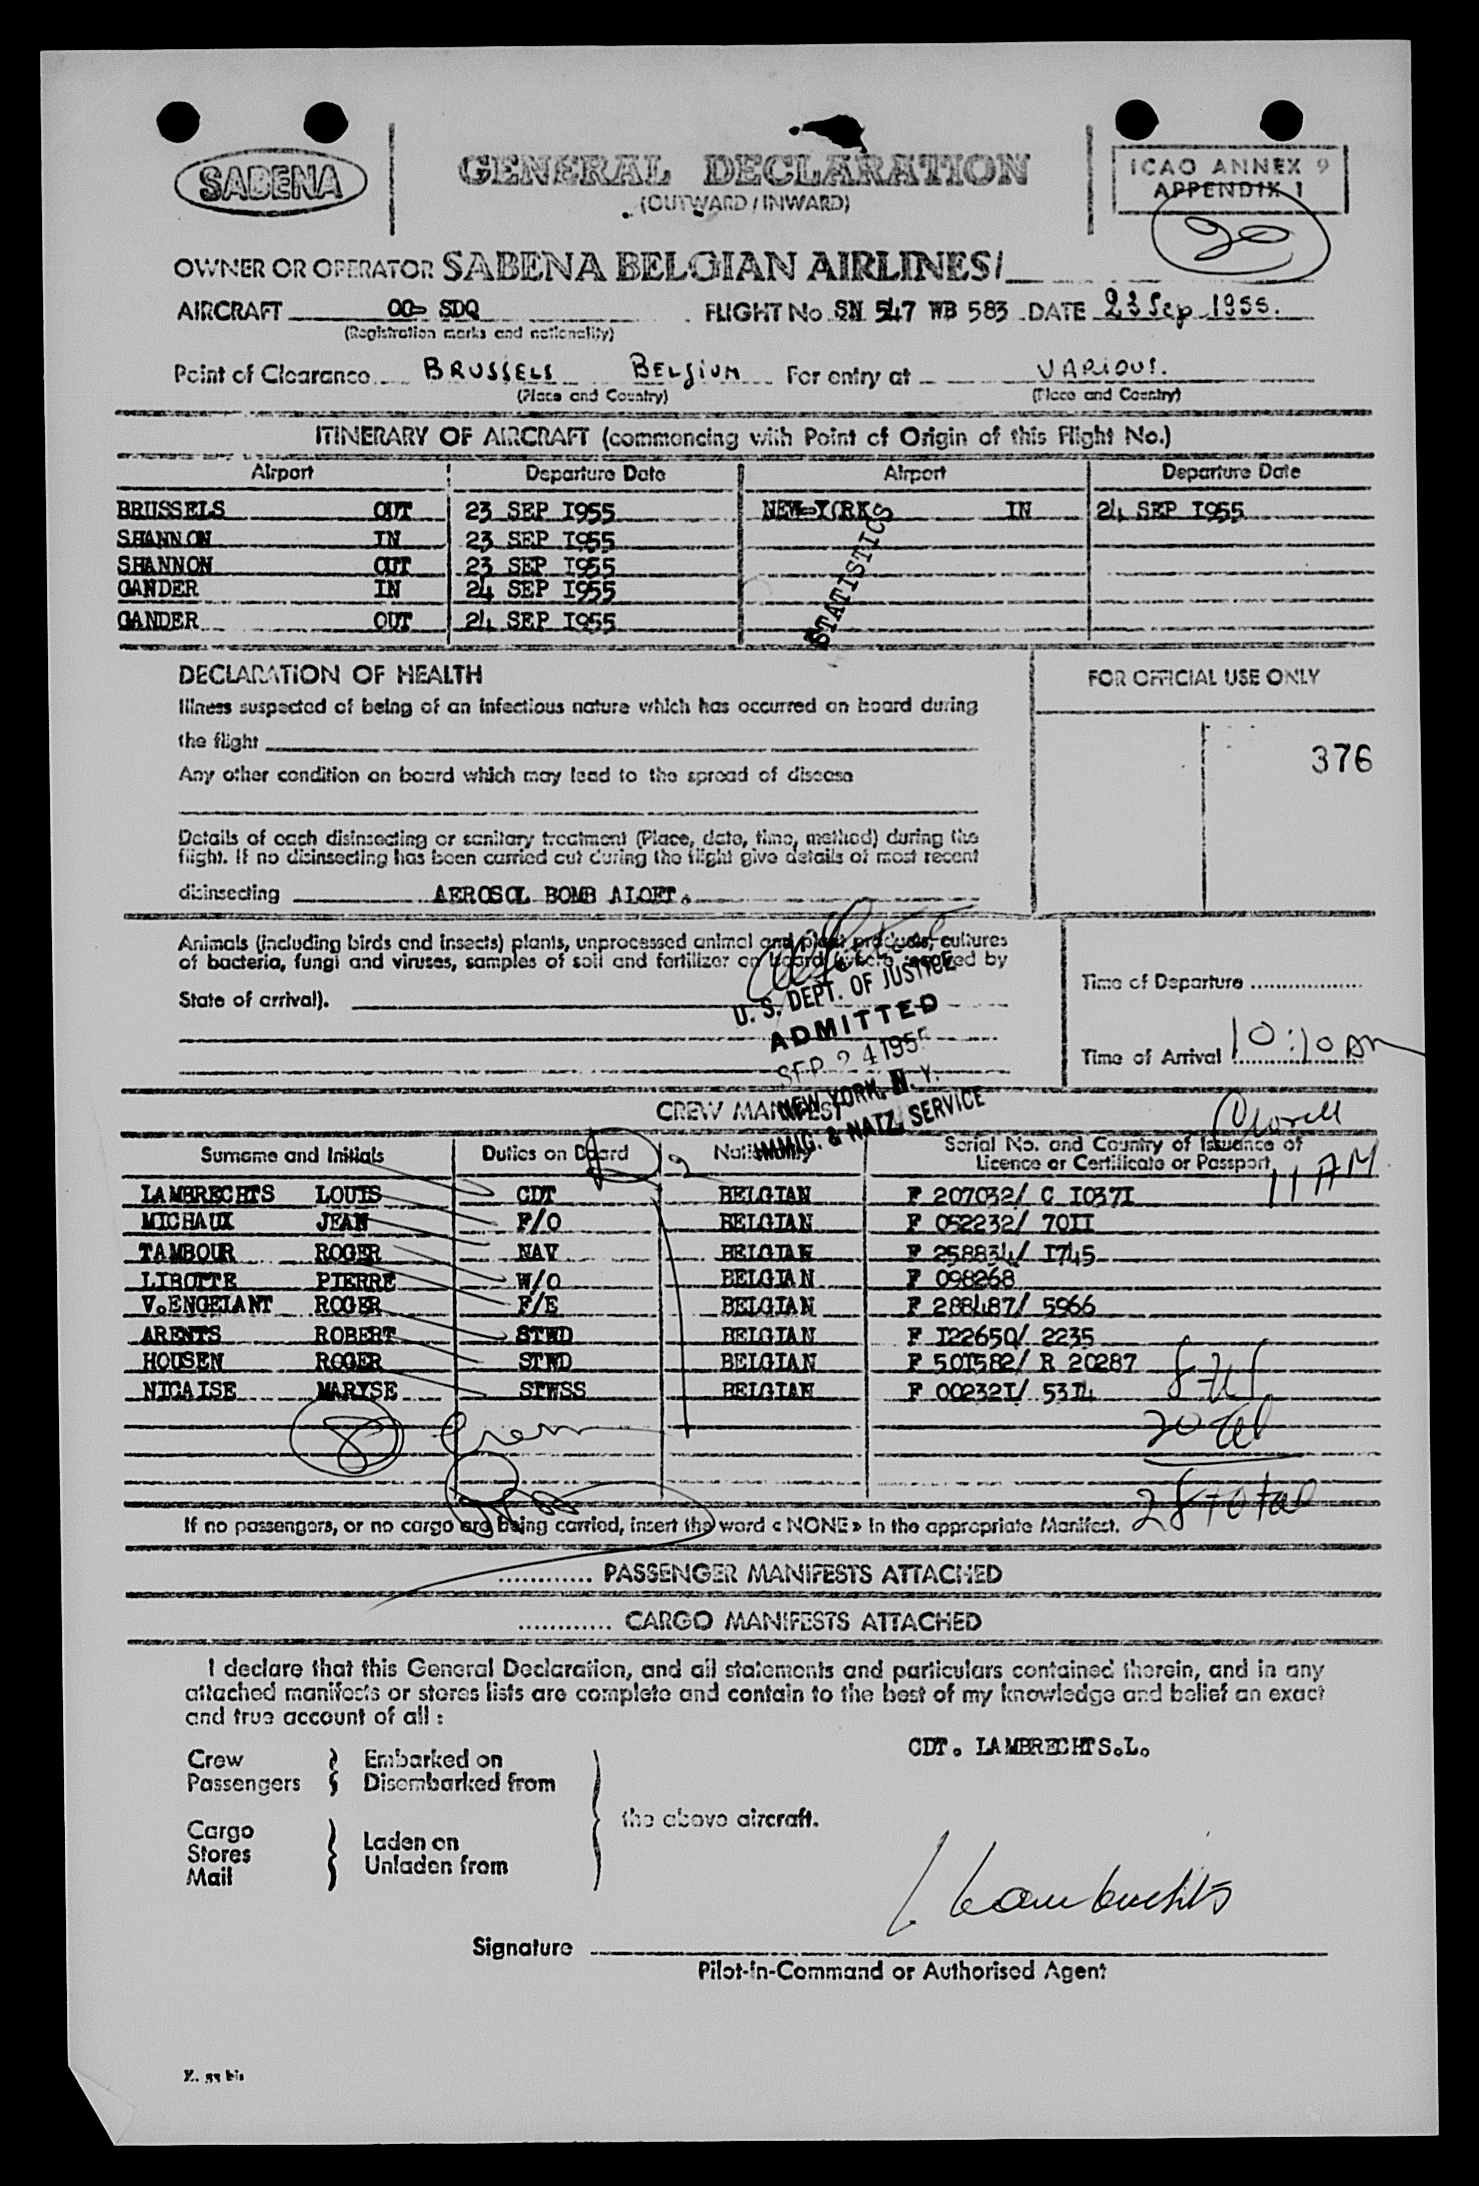 SABENA
GENERAL DECLARATION
(OUTWARD / INWARD)
ICAO ANNEX 9
APPENDIX 1
20
OWNER OR OPERATOR SABENA BELGIAN AIRLINES/
AIRCRAFT OO- SDQ FLIGHT No SN 547 WB 583 DATE 23 Sep 1955.
(Registration marks and nationality)
Point of Clearance BRUSSELS BELGIUM For entry at VARIOUS.
(Place and Country) (Place and Country)
ITINERARY OF AIRCRAFT (commencing with Point of Origin of this Flight No.)
Airport Departure Date Airport Departure Date
BRUSSELS OUT 23 SEP I955 NEW-YORK IN 24 SEP I955
SHANNON IN 23 SEP I955
SHANNON OUT 23 SEP I955
GANDER IN 24 SEP I955
GANDER OUT 24 SEP I955
STATISTICS
DECLARATION OF HEALTH
FOR OFFICIAL USE ONLY
Illness suspected of being of an infectious nature which has occurred on board during
the flight
376
Any other condition on board which may lead to the spread of disease
Details of each disinsecting or sanitary treatment (Place, date, time, method) during the
flight. If no disinsecting has been carried out during the flight give details of most recent
disinsecting AEROSOL BOMB ALOET.
Animals (including birds and insects) plants, unprocessed animal and plant products, cultures
of bacteria, fungi and viruses, samples of soil and fertilizer on board (where required by
State of arrival).
U. S. DEPT. OF JUSTICE
ADMITTED
SEP 24 1955
NEW YORK, N. Y.
IMMIG. & NATZ. SERVICE
Time of Departure
Time of Arrival 10:10 am
CREW MANIFEST
11 AM
Surname and Initials Duties on Board Nationality Serial No. and Country of Issuance of
Licence or Certificate or Passport
LAMBRECHTS LOUIS CDT BELGIAN F 207032/ C I037I
MICHAUX JEAN F/O BELGIAN F 052232/ 70II
TAMBOUR ROGER NAV BELGIAN F 258834/ I745
LIBOTTE PIERRE W/O BELGIAN F 098268
V.ENGELANT ROGER F/E BELGIAN F 288487/ 5966
ARENTS ROBERT STWD BELGIAN F I22650/ 2235
HOUSEN ROGER STWD BELGIAN F 50I582/ R 20287
NICAISE MARYSE STWSS BELGIAN F 00232I/ 53I4
8 Crem
28 total
If no passengers, or no cargo are being carried, insert the word « NONE » in the appropriate Manifest.
............ PASSENGER MANIFESTS ATTACHED
............ CARGO MANIFESTS ATTACHED
I declare that this General Declaration, and all statements and particulars contained therein, and in any
attached manifests or stores lists are complete and contain to the best of my knowledge and belief an exact
and true account of all :
CDT. LAMBRECHTS.L.
Crew Embarked on
Passengers Disembarked from
the above aircraft.
Cargo
Stores Laden on
Mail Unladen from
L Lambrechts
Signature
Pilot-in-Command or Authorised Agent